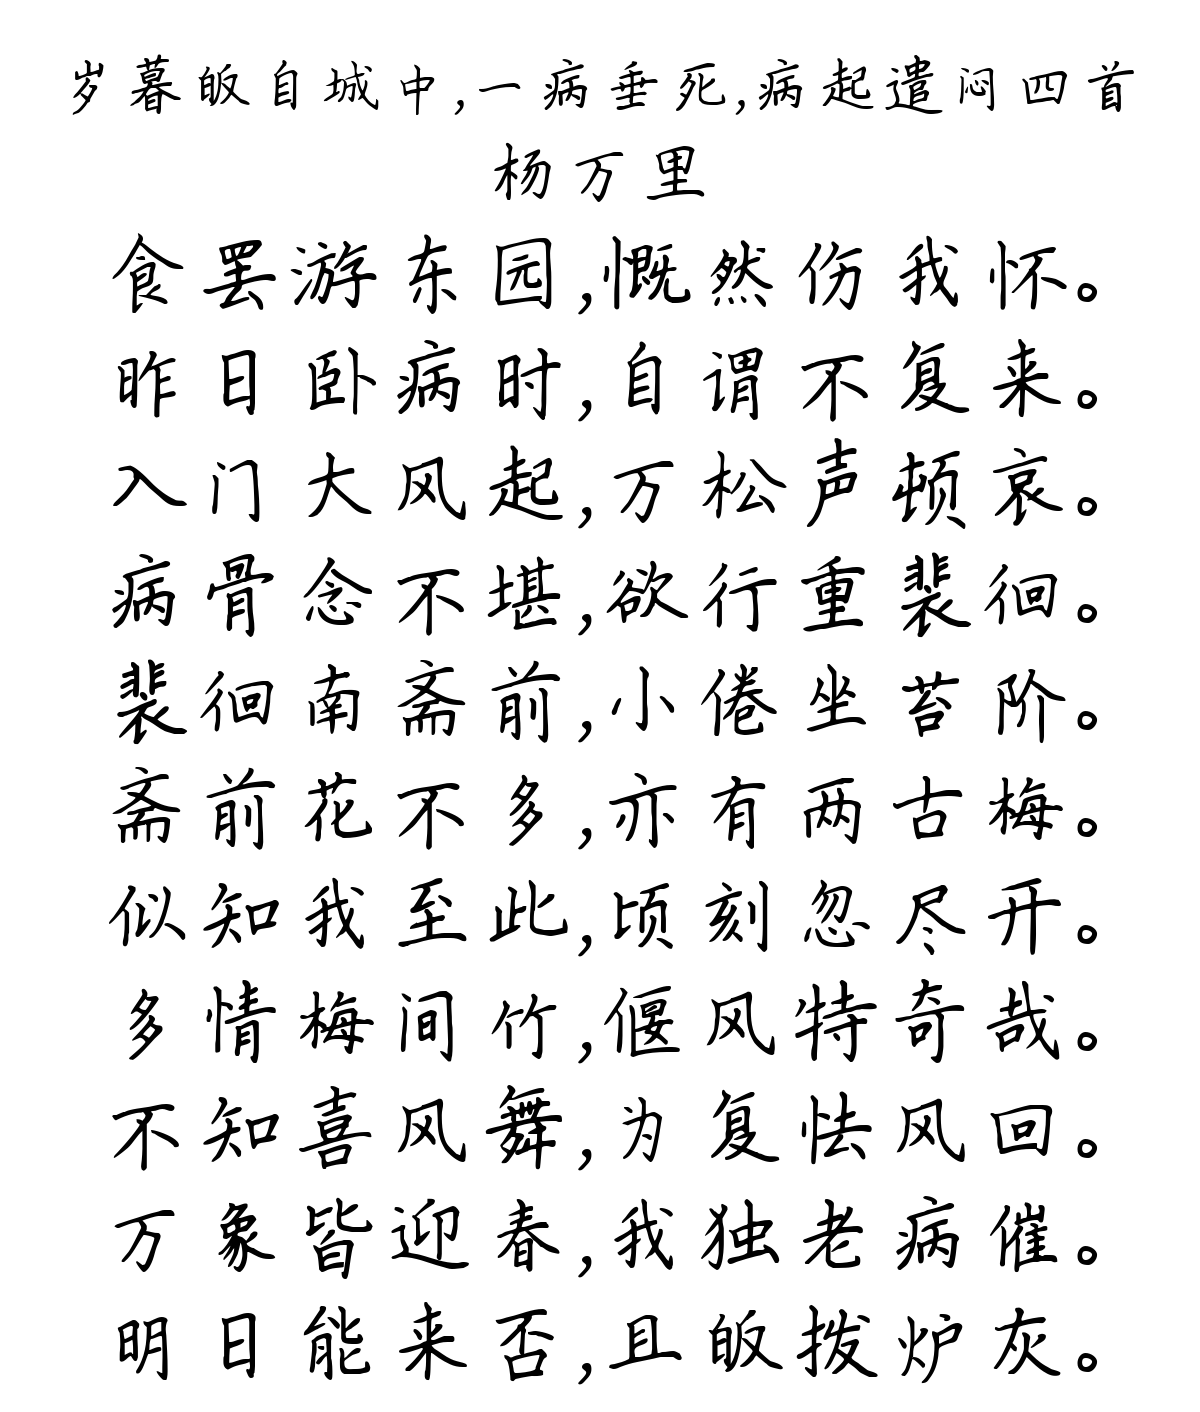 岁暮皈自城中,一病垂死,病起遣闷四首
杨万里
食罢游东园,慨然伤我怀。
昨日卧病时,自谓不复来。
入门大风起,万松声顿哀。
病骨念不堪,欲行重裴徊。
裴徊南斋前,小倦坐苔阶。
斋前花不多,亦有两古梅。
似知我至此,顷刻忽尽开。
多情梅间竹,偃风特奇哉。
不知喜风舞,为复怯风回。
万象皆迎春,我独老病催。
明日能来否,且皈拨炉灰。